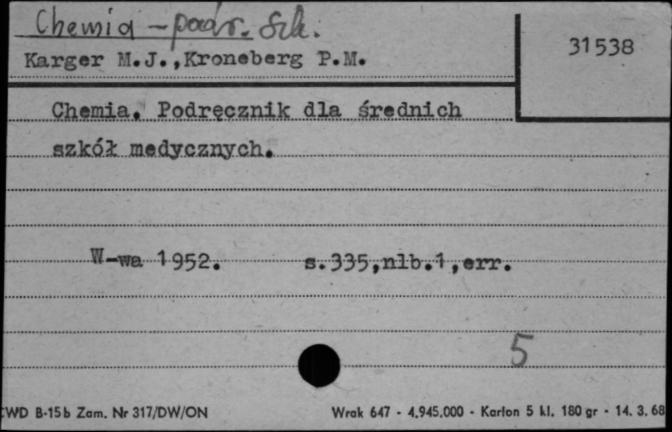 Chemia - podr. szk.
31538
Karger M.J.,Kroneberg P.M.
Chemia. Podręcznik dla średnich
szkół medycznych.
W-wa 1952. s.335,nlb.1,err.
5
CWD B-15b Zam. Nr 317/DW/ON Wrak 647 - 4.945.000 - Karton 5 kl. 180 gr - 14. 3. 68